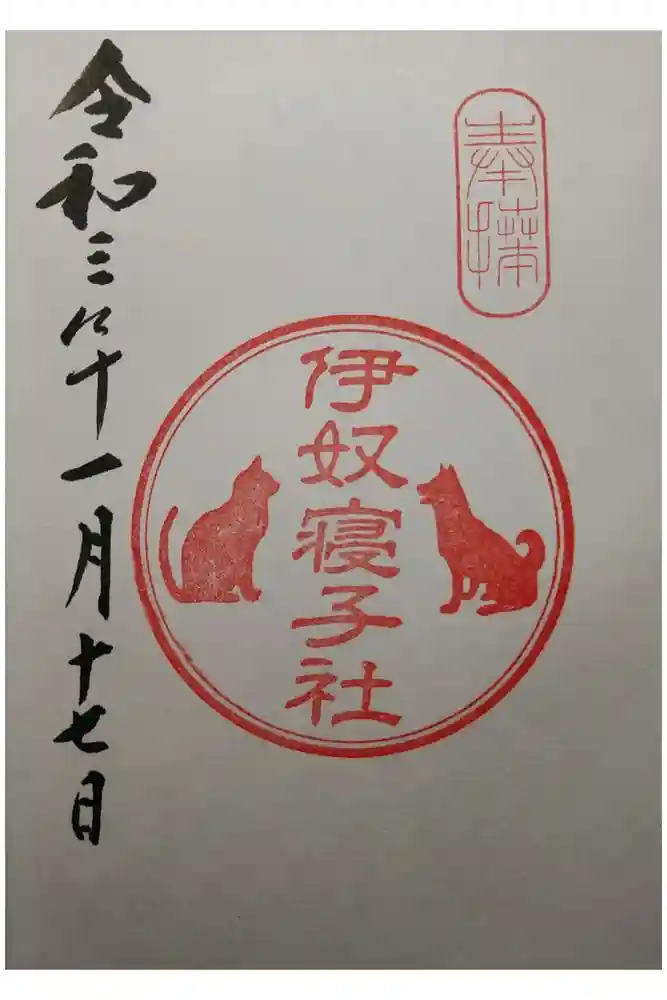 奉拝
伊奴寝子社
令和三年十一月十七日